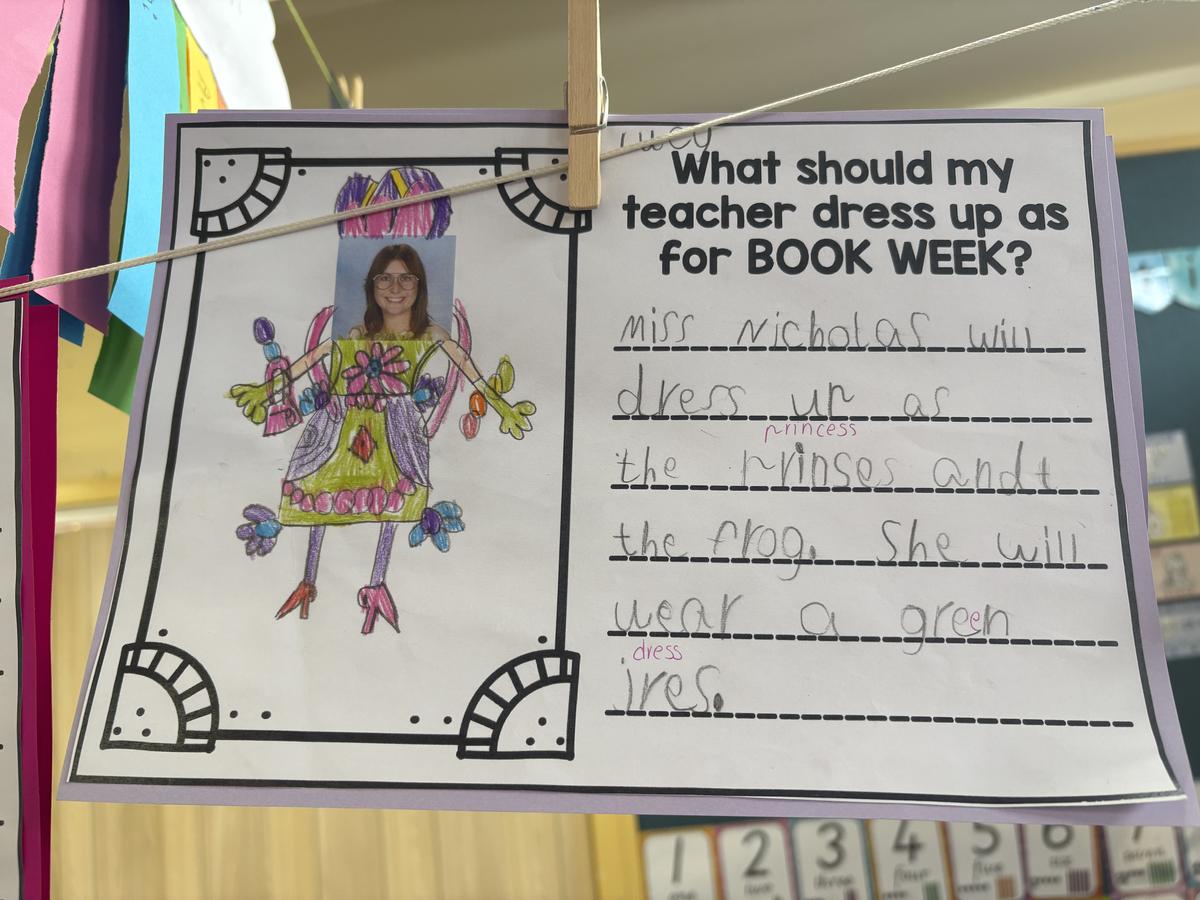 Lucy
What should my
teacher dress up as
for BOOK WEEK?
Miss Nicholas will
dress up as
princess
the prinses andt
the frog. She will
wear a green
dress
jres.
1 2 3 4 5 6 7
two three four five six seven